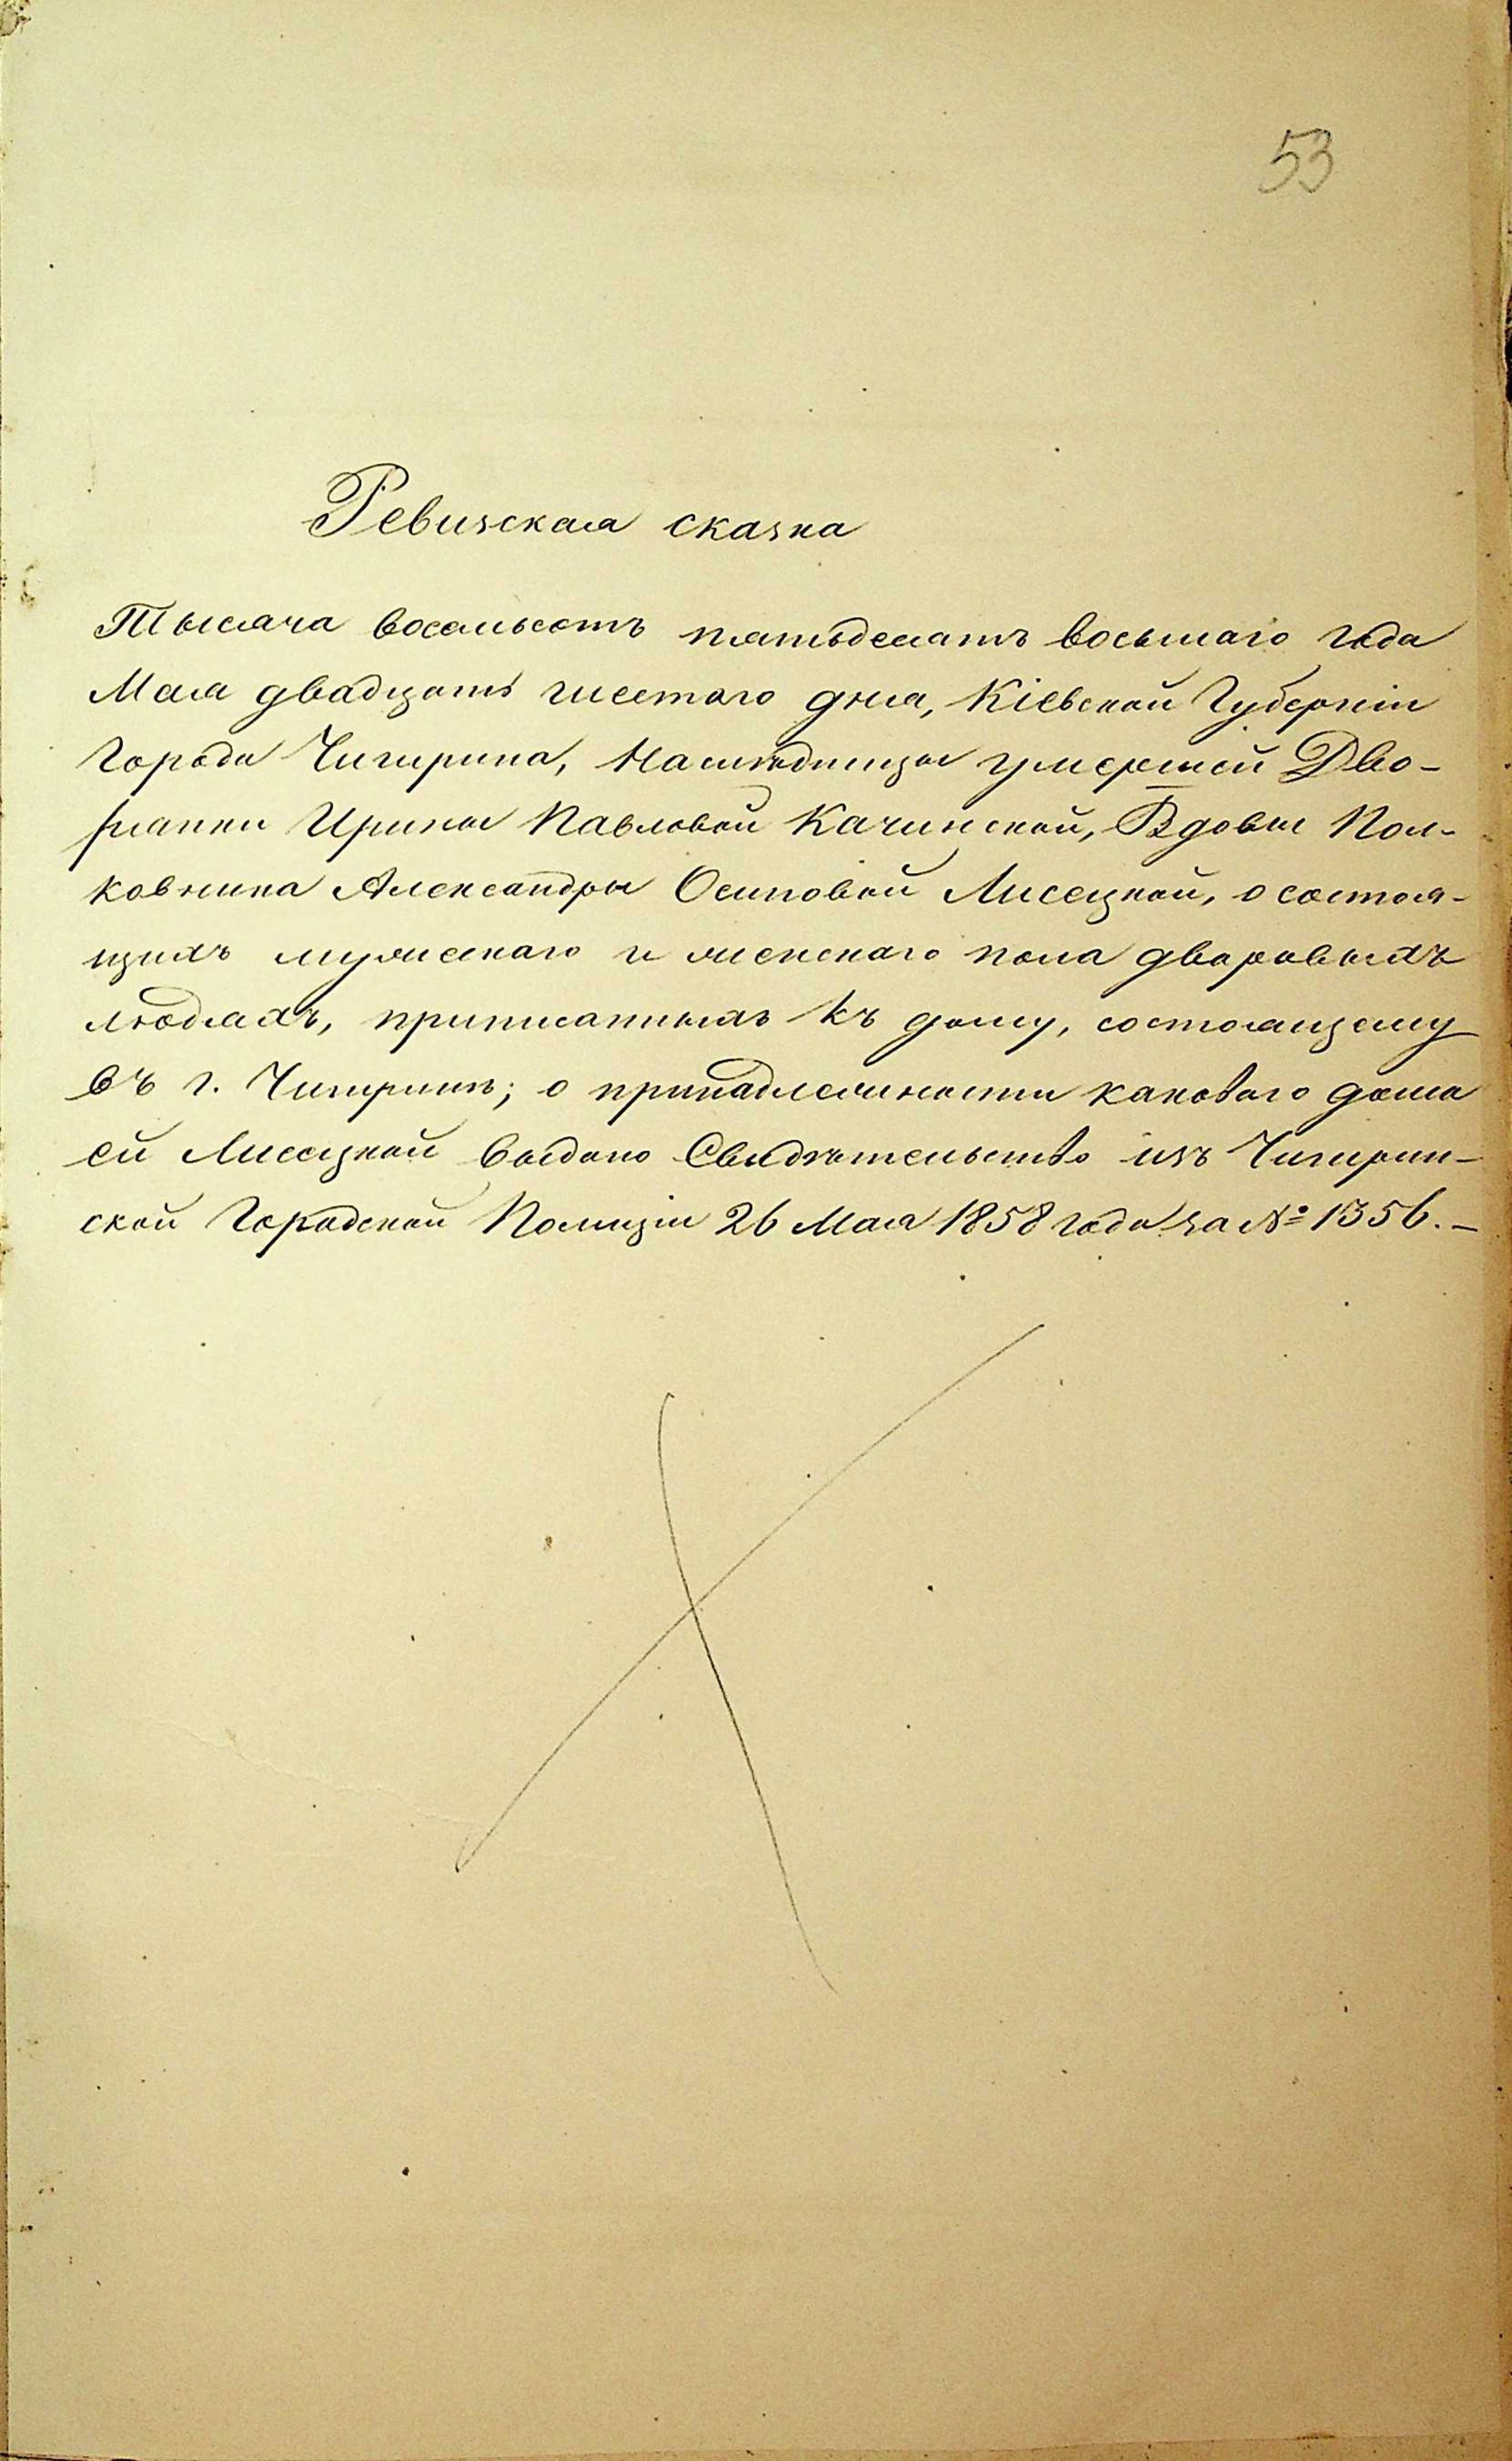 53
Ревизская сказка
Тысяча восемьсотъ пятьдесятъ восьмаго года
Мая двадцать шестаго дня, Кіевской Губерніи
Города Чигирина, Наслѣдницы умершей Дво-
рянки Ирины Павловой Качинской, Вдовы Пол-
ковника Александры Осиповой Лисецкой, о состоя-
щихъ мужескаго и женскаго пола дворовыхъ
людяхъ, приписанныхъ къ дому, состоящему
въ г. Чигиринѣ; о принадлежности каковаго дома
ей Лисецкой выдано Свидѣтельство изъ Чигирин-
ской Городской Полиціи 26 Мая 1858 года за № 1356. –